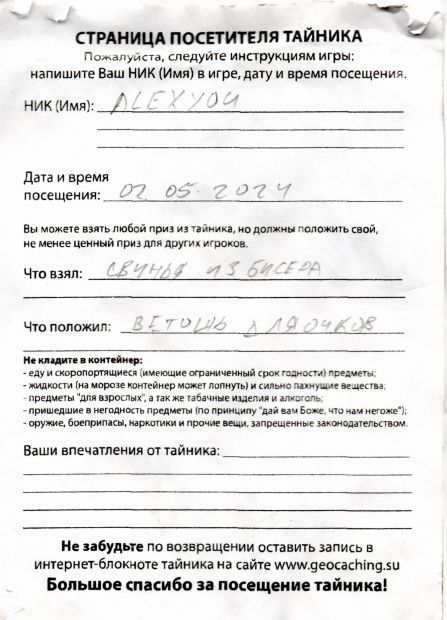 СТРАНИЦА ПОСЕТИТЕЛЯ ТАЙНИКА
Пожалуйста, следуйте инструкциям игры:
напишите Ваш НИК (Имя) в игре, дату и время посещения.
НИК (Имя): ALEXYOU
Дата и время
посещения: 02 05. 2024
Вы можете взять любой приз из тайника, но должны положить свой,
не менее ценный приз для других игроков.
Что взял: СВИНЬЯ ИЗ БИСЕРА
Что положил: ВЕТОШЬ ДЛЯ ОЧКОВ
Не кладите в контейнер:
- еду и скоропортящиеся (имеющие ограниченный срок годности) предметы;
- жидкости (на морозе контейнер может лопнуть) и сильно пахнущие вещества;
- предметы "для взрослых", а так же табачные изделия и алкоголь;
- пришедшие в негодность предметы (по принципу "дай вам Боже, что нам негоже");
- оружие, боеприпасы, наркотики и прочие вещи, запрещенные законодательством.
Ваши впечатления от тайника:
Не забудьте по возвращении оставить запись в
интернет-блокноте тайника на сайте www.geocaching.su
Большое спасибо за посещение тайника!